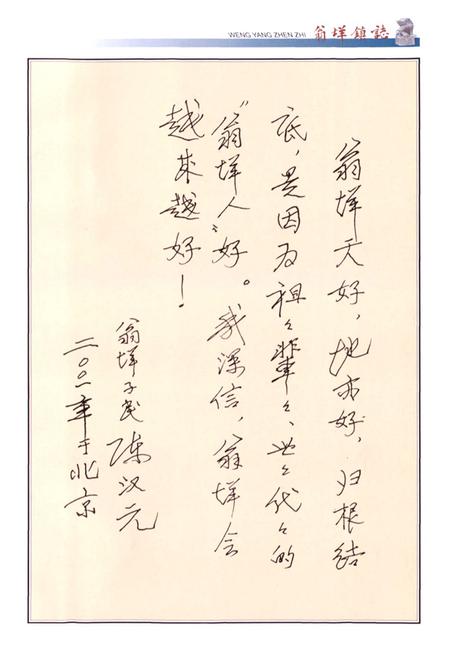 WENG YANG ZHEN ZHI 翁垟鎮誌
翁垟天好，地亦好，归根结
底，是因为祖々辈々、世々代々的
“翁垟人”好。我深信，翁垟会
越来越好！
翁垟子民 陈汉元
二〇〇一年于北京